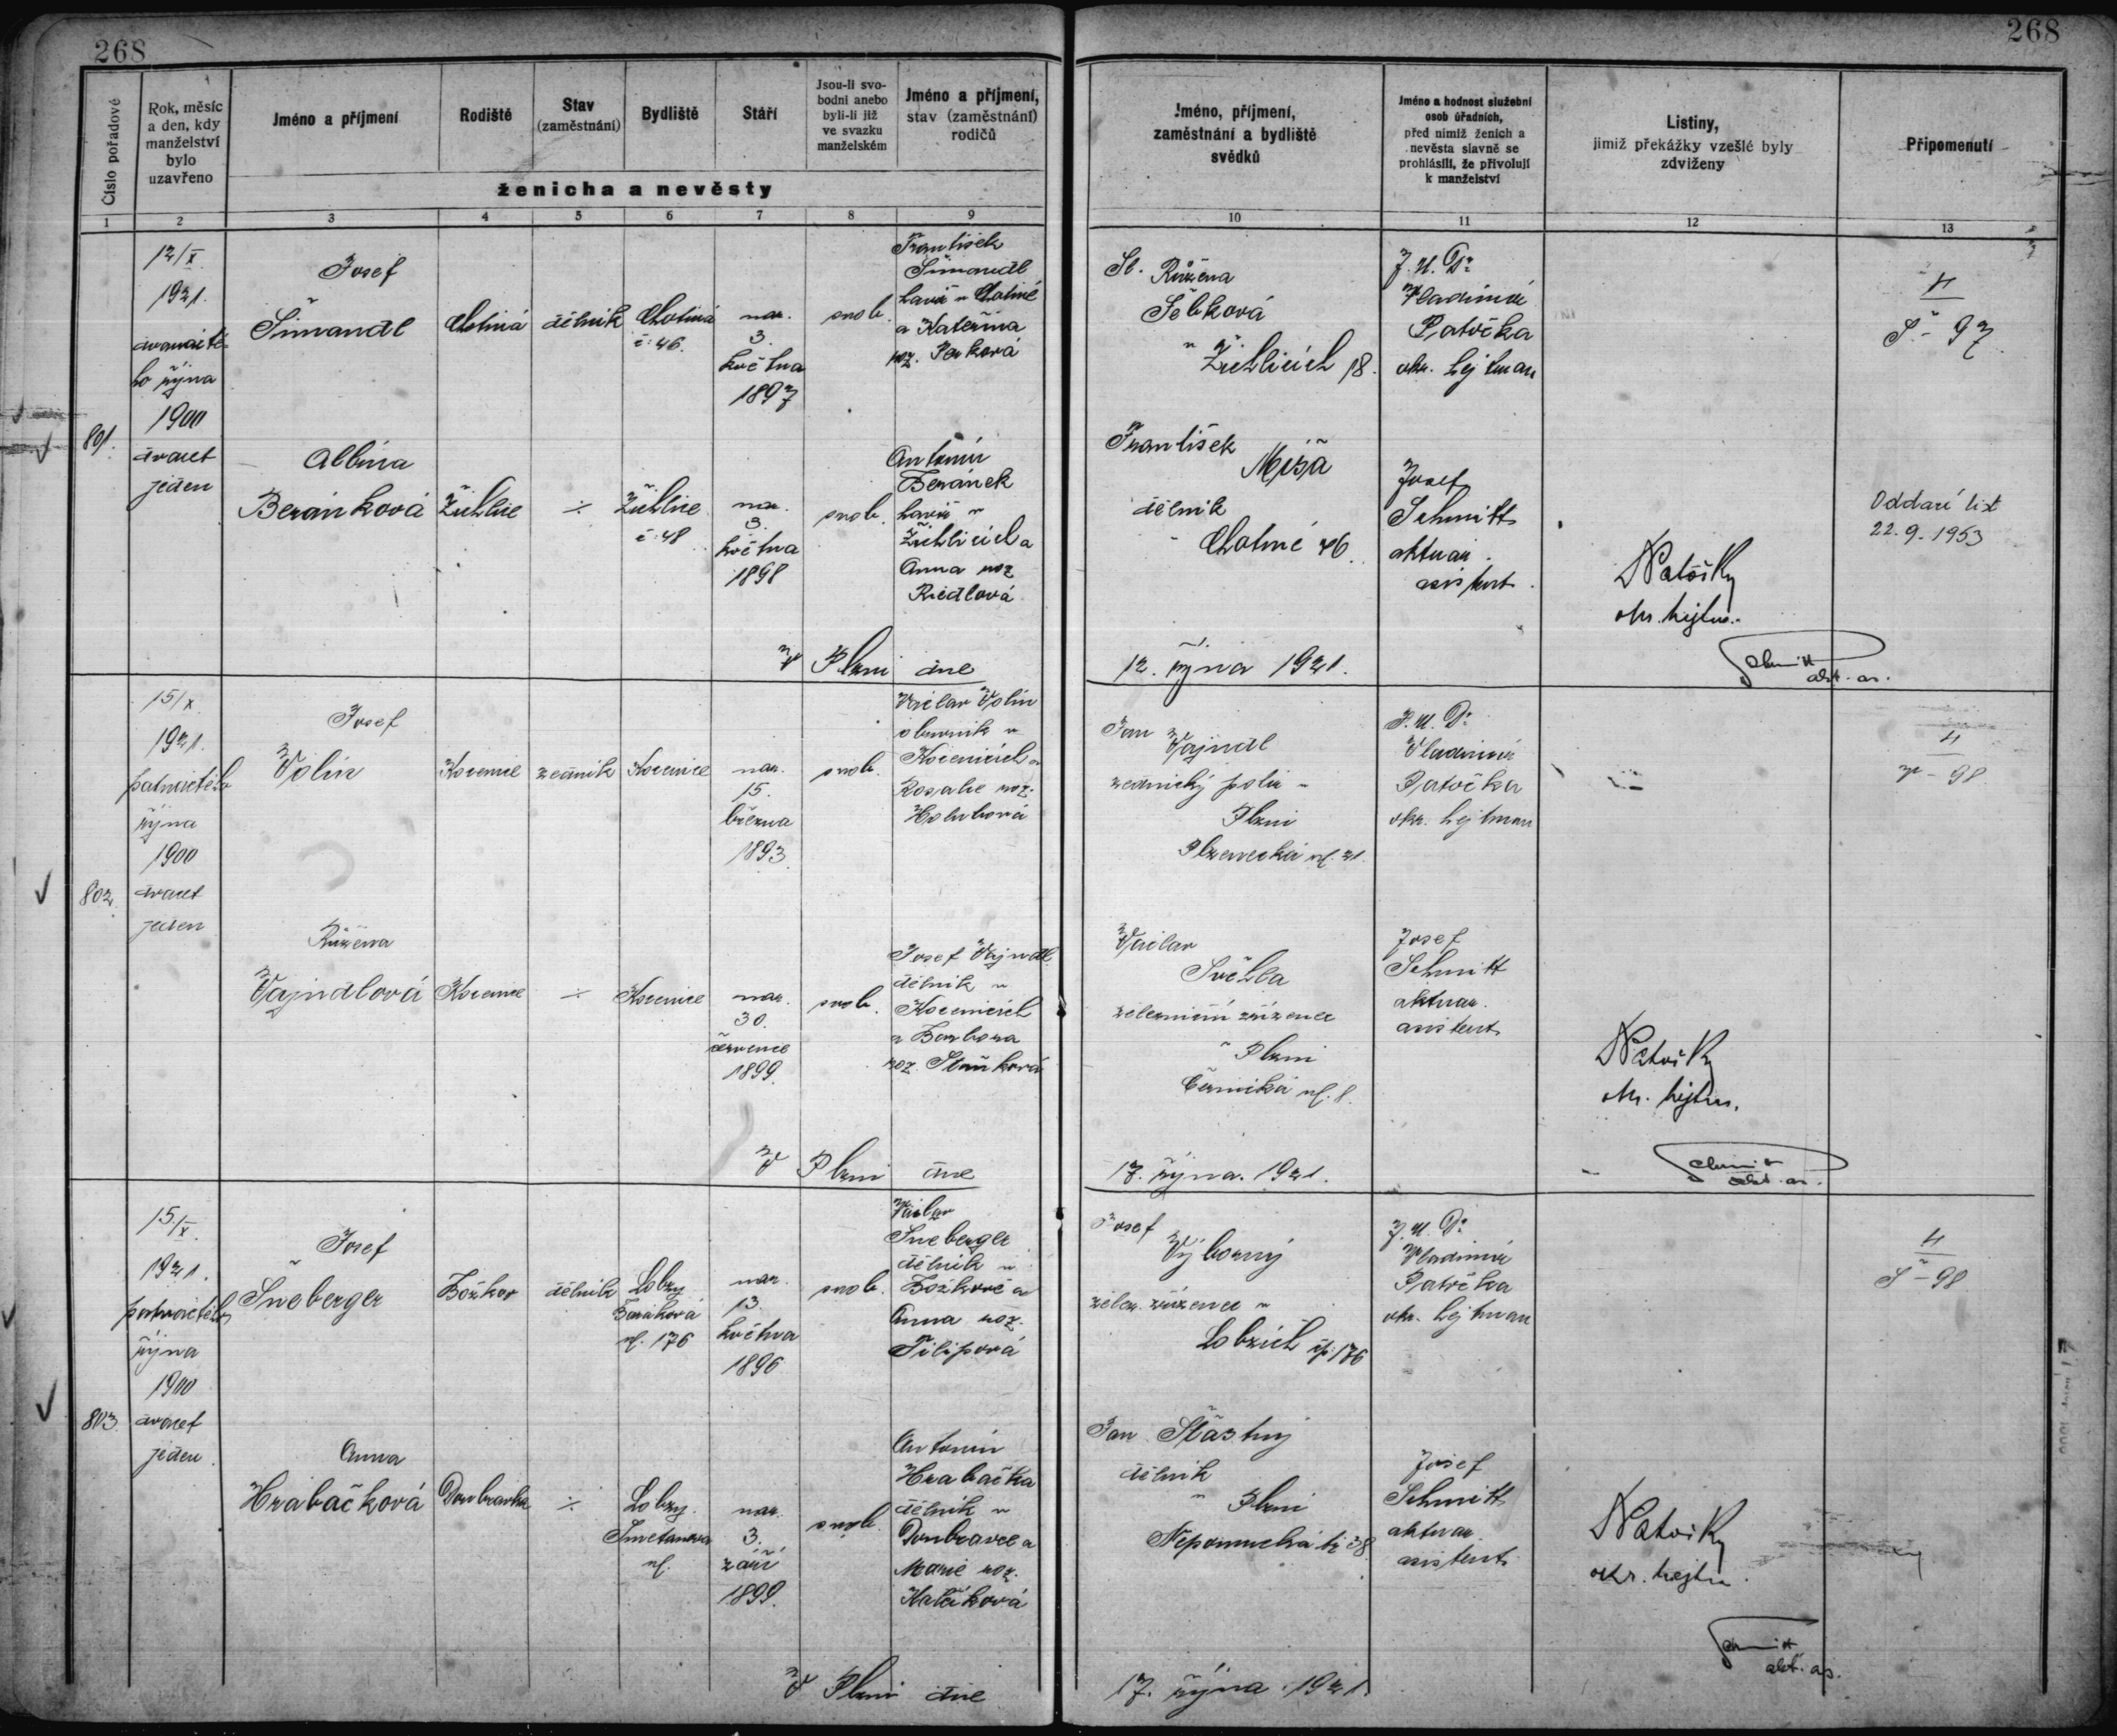 268
268
Číslo pořadové
Rok, měsíc
a den, kdy
manželství
bylo
uzavřeno
Jméno a příjmení
Rodiště
Stav
(zaměstnání)
Bydliště
Stáří
Jsou-li svo-
bodni anebo
byli-li již
ve svazku
manželském
Jméno a příjmení,
stav (zaměstnání)
rodičů
ženicha a nevěsty
Jméno, příjmení,
zaměstnání a bydliště
svědků
Jméno a hodnost služební
osob úřadních,
před nimiž ženich a
nevěsta slavně se
prohlásili, že přivolují
k manželství
Listiny,
jimiž překážky vzešlé byly
zdviženy
Připomenutí
1 2 3 4 5 6 7 8 9 10 11 12 13
801.
12/X
1921.
dvanácté-
ho října
1900
dvacet
jeden
Josef
Šimandl
Chotiná
dělník
Chotiná
č. 46.
nar.
3.
května
1897
svob.
František
Šimandl
v Chotiné
a Kateřina
roz.
Růžena
v Žichlicích 18.
J. U. Dr.
Vladimír
Patočka
okr. hejtman
4
Š - 97
Albína
Beránková
Žichlice
÷
Žichlice
č. 48
nar.
3.
května
1898
svob.
Antonín
Beránek
v
Žichlicích a
Anna roz.
Riedlová
František
Míša
dělník
v Chotiné 46.
Josef
Schmitt
aktuar.
asistent.
Patočka
okr. hejtm.
Oddací list
22.9.1953
V Plzni dne
12. října 1921.
Schmitt
akt. as.
802.
15/X
1921.
patnáctého
října
1900
dvacet
jeden
Josef
Volín
Kocenice
zedník
Kocenice
nar.
15.
března
1893.
svob.
Václav Volín
obuvník v
Kocenicích a
Rosalie roz.
Holubová
Jan
Vajndl
zednický polír v
Plzni
Plzenecká ul. 21.
J. U. Dr.
Vladimír
Patočka
okr. hejtman
4
V - 98
Růžena
Vajndlová
Kocenice
÷
Kocenice
nar.
30.
července
1899.
svob.
Josef Vajndl
dělník v
Kocenicích
a Barbora
roz.
Václav
Světla
železniční zřízenec
v Plzni
ul. 8.
Josef
Schmitt
aktuar.
asistent
Patočka
okr. hejtm.
V Plzni dne
17. října. 1921.
Schmitt
akt. as.
803.
15./X.
1921.
patnáctého
října
1900
dvacet
jeden.
Josef
Šneberger
Božkov
dělník
Lobzy
ul. 176
nar.
13.
května
1896
svob.
Václav
Šneberger
dělník v
Božkově a
Anna roz.
Filipová
Josef
Výborný
želez. zřízenec v
Lobzích čp. 176
J. U. Dr.
Vladimír
Patočka
okr. hejtman
4
Š - 98
Anna
Hrabačková
Doubravka
÷
Lobzy.
Smetanova
ul.
nar.
3.
září
1899.
svob.
Antonín
Hrabačka
dělník v
Doubravce a
Marie roz.
Jan Šťastný
dělník
v Plzni
Nepomucká tř. 38.
Josef
Schmitt
aktuar.
asistent.
Patočka
okr. hejtm.
V Plzni dne
17. října. 1921.
Schmitt
akt. as.